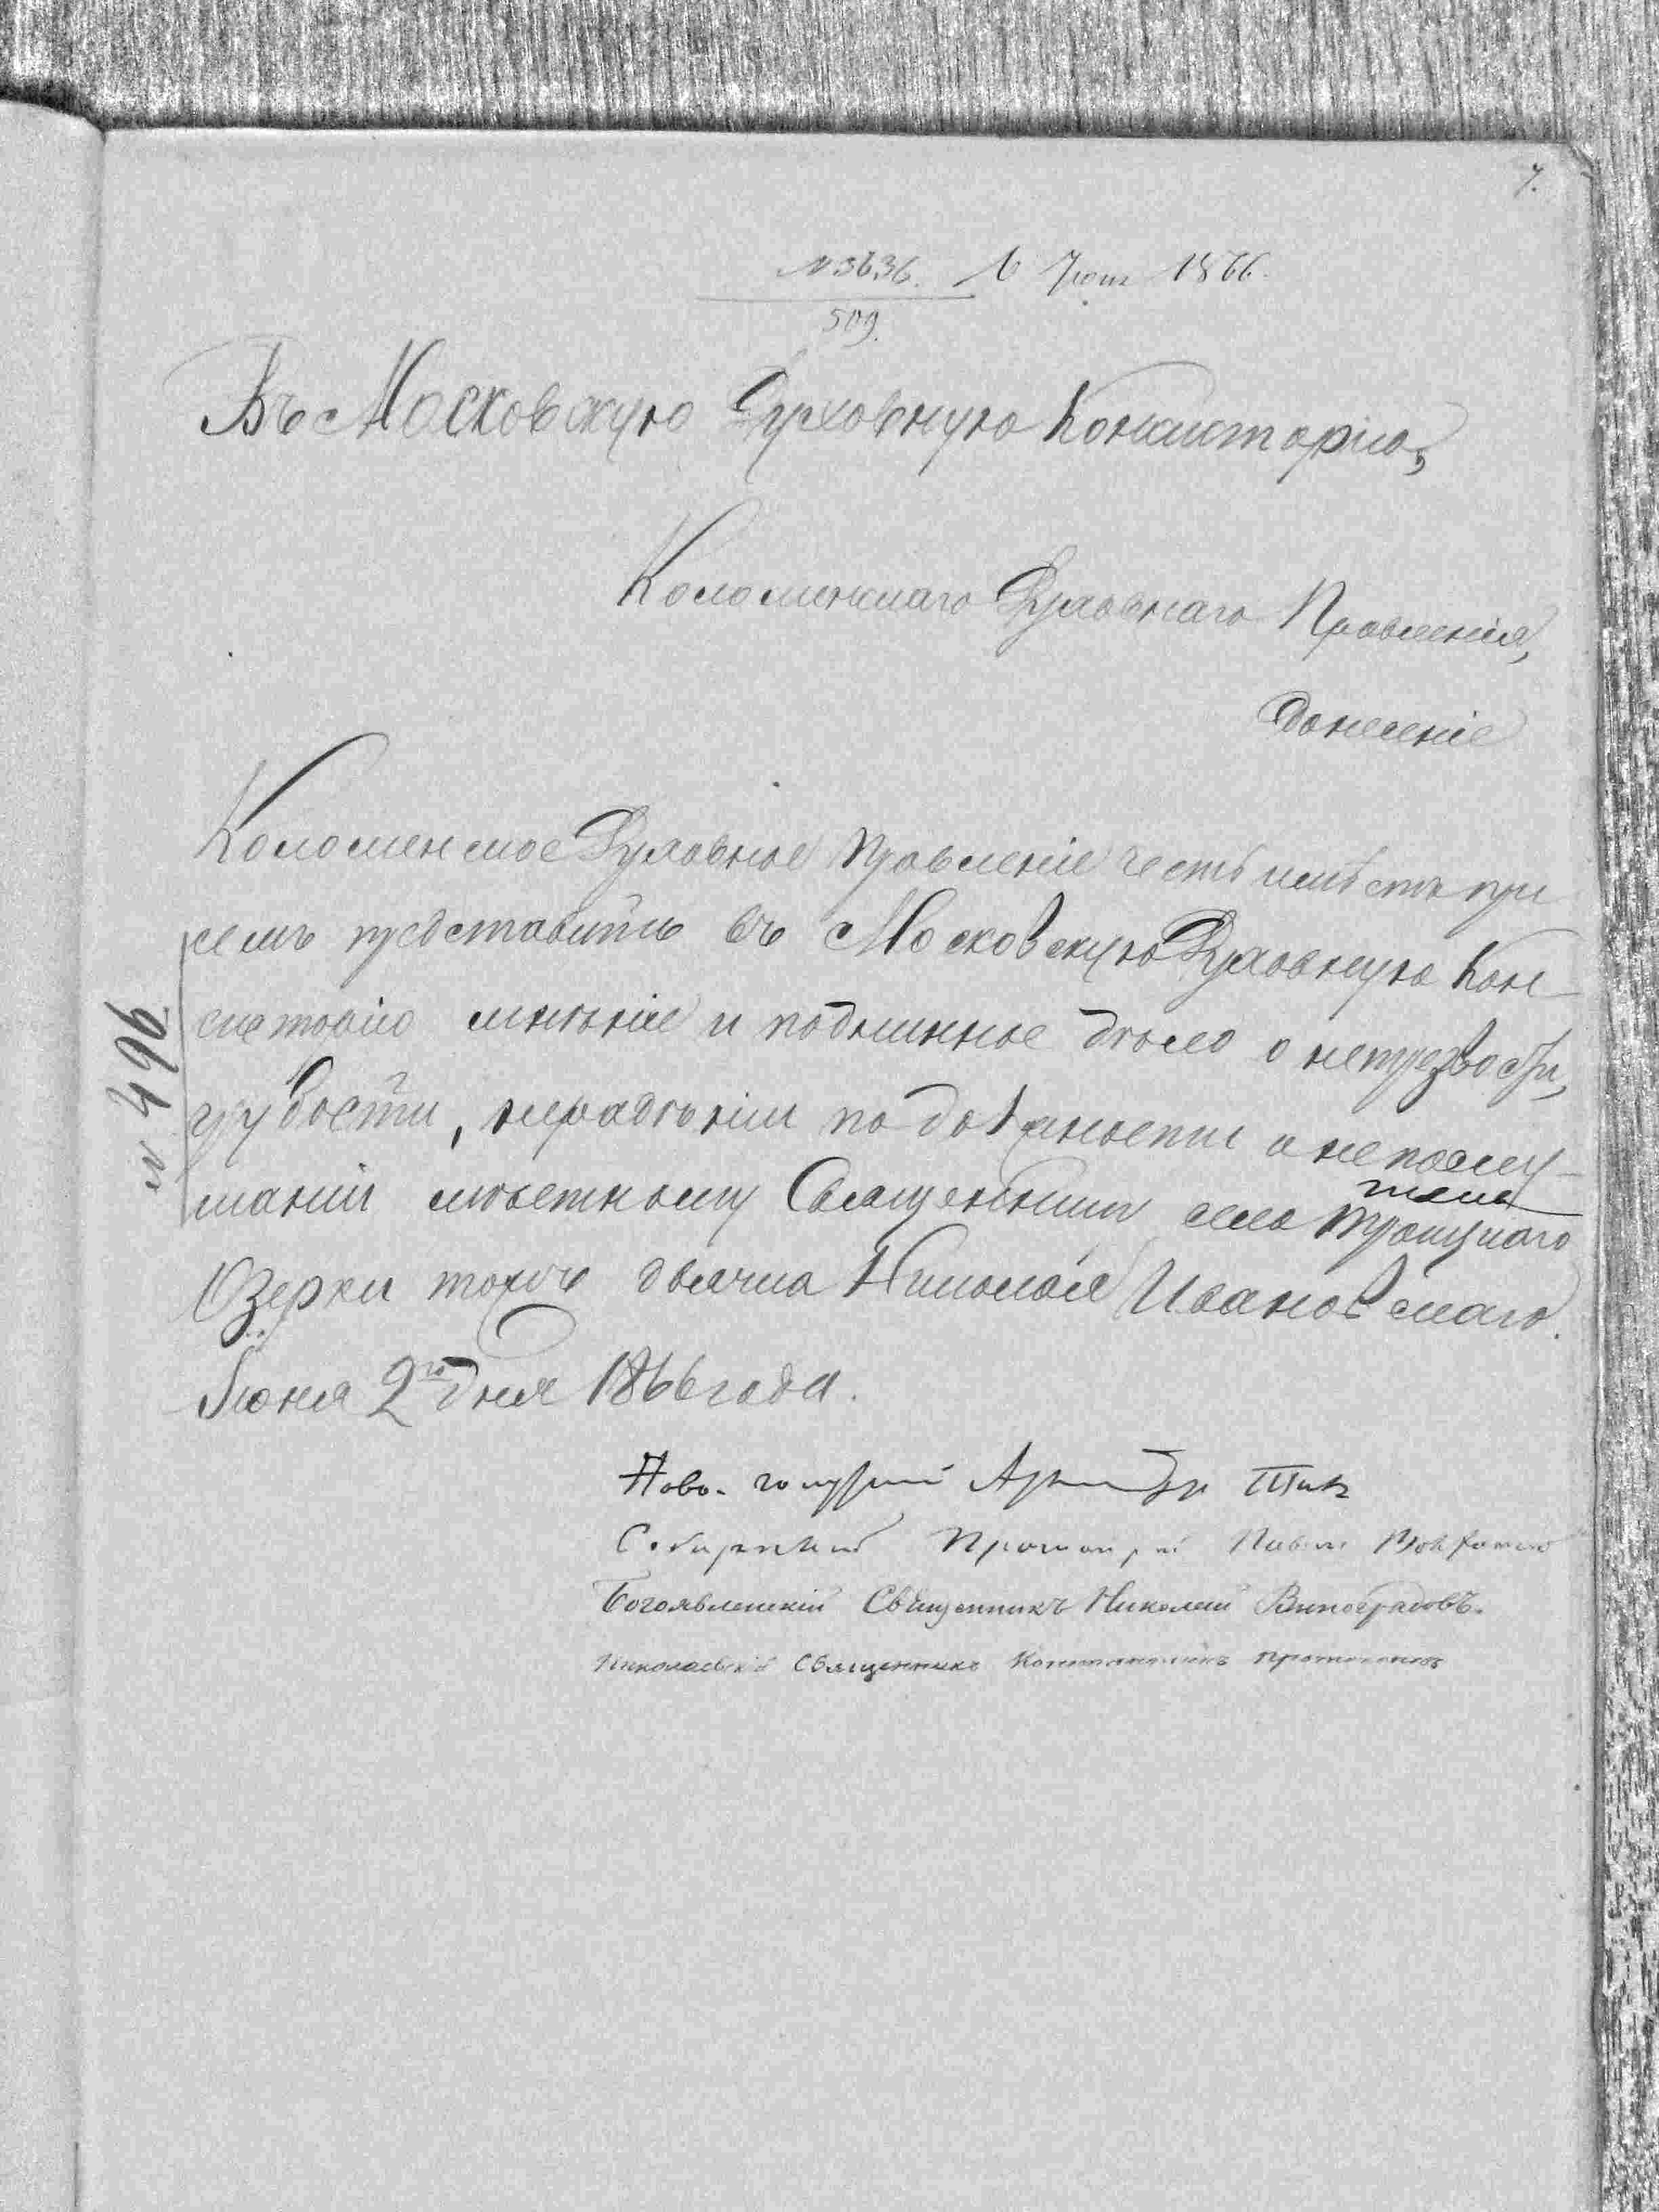 7.
№ 3636. 6 Іюня 1866.
509.
Въ Московскую Духовную Консисторію,
Коломенскаго Духовнаго Правленія,
донесеніе
Коломенское Духовное Правленіе честь имѣетъ при
семъ представить въ Московскую Духовную Кон-
систорію мнѣніе и подлинное дѣло о нетрезвости,
грубости, нерадѣніи по должности и непослу-
шаніи мѣстному Священнику села Троицкаго
Озерки тожъ дьячка Николая Ивановскаго.
Іюня 2го дня 1866 года.
№ 496
Ново-голутвий
Соборный Протоіерей
Богоявленскій Священникъ Николай Виноградовъ.
Николаевскій Священникъ Константинъ Протопоповъ